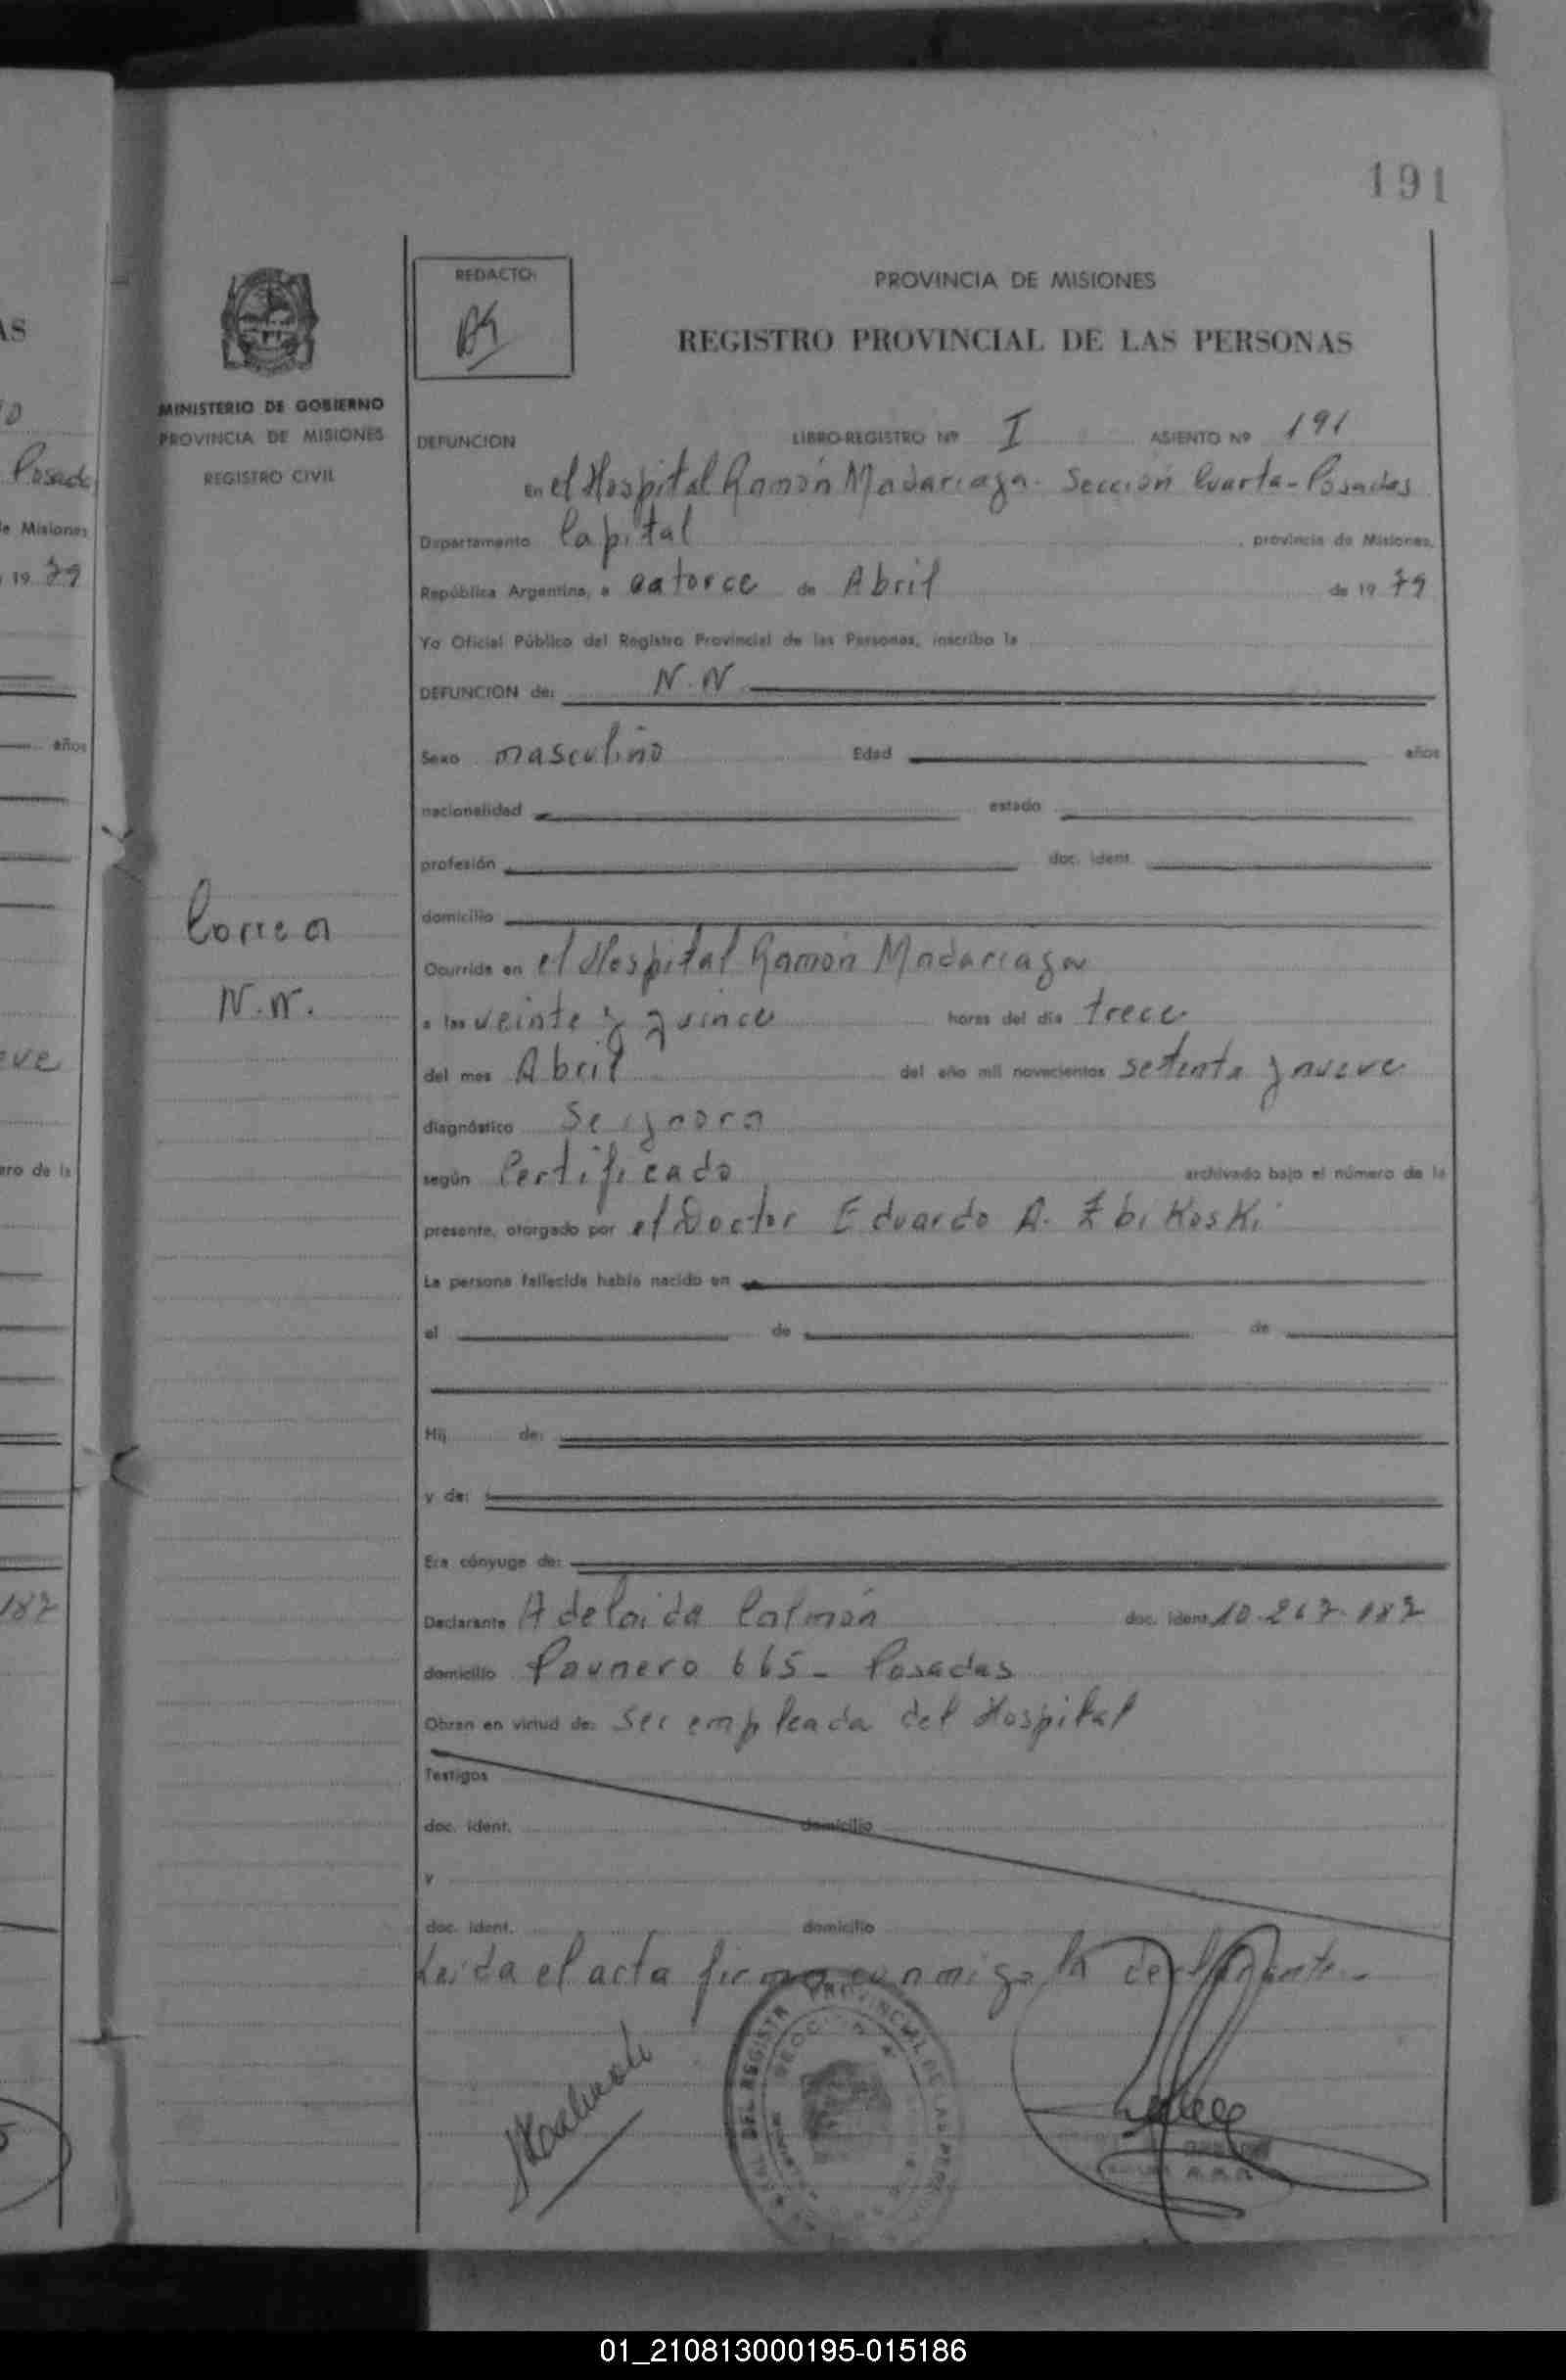 191
REDACTO:
PROVINCIA DE MISIONES
REGISTRO PROVINCIAL DE LAS PERSONAS
MINISTERIO DE GOBIERNO
PROVINCIA DE MISIONES
REGISTRO CIVIL
DEFUNCION LIBRO-REGISTRO Nº I ASIENTO Nº 191
En el Hospital Ramón Madariaga. Sección Cuarta - Posadas
Departamento Capital , provincia de Misiones,
República Argentina, a catorce de Abril de 1979
Yo Oficial Público del Registro Provincial de las Personas, inscribo la
DEFUNCION de: N. N
Sexo masculino Edad años
nacionalidad estado
profesión doc. ident.
domicilio
Correa
N.N.
Ocurrida en el Hospital Ramón Madariaga
a las veinte y quince horas del día trece
del mes Abril del año mil novecientos setenta y nueve
diagnóstico Se ignora
según Certificado archivado bajo el número de la
presente, otorgado por el Doctor Eduardo A. Zbikoski
La persona fallecida había nacido en
el de de
Hij de:
y de:
Era cónyuge de:
Declarante Adelaida Calmón doc. ident. 10.267.187
domicilio Paunero 665 - Posadas
Obran en virtud de: Ser empleada del Hospital
Testigos
doc. ident. domicilio
y
doc. ident. domicilio
Leida el acta firma conmigo la declarante.-
01_210813000195-015186